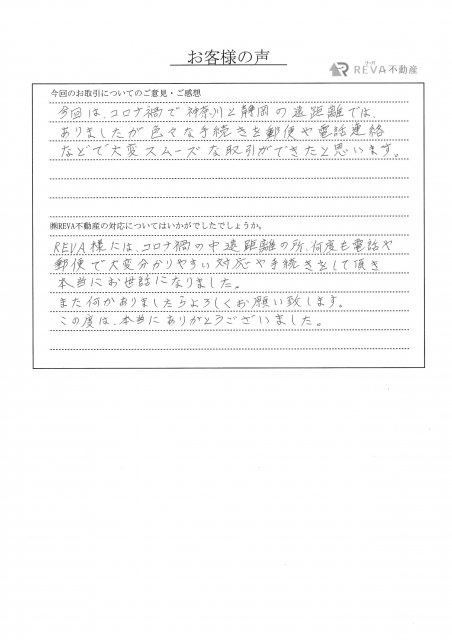 お客様の声
リーバ
REVA不動産
今回のお取引についてのご意見・ご感想
今回は、コロナ禍で神奈川と静岡の遠距離では、
ありましたが色々な手続きを郵便や電話連絡
などで大変スムーズな取引ができたと思います。
㈱REVA不動産の対応についてはいかがでしたでしょうか。
REVA様には、コロナ禍の中遠距離の所、何度も電話や
郵便で大変分かりやすい対応や手続きをして頂き
本当にお世話になりました。
また何かありましたらよろしくお願い致します。
この度は、本当にありがとうございました。